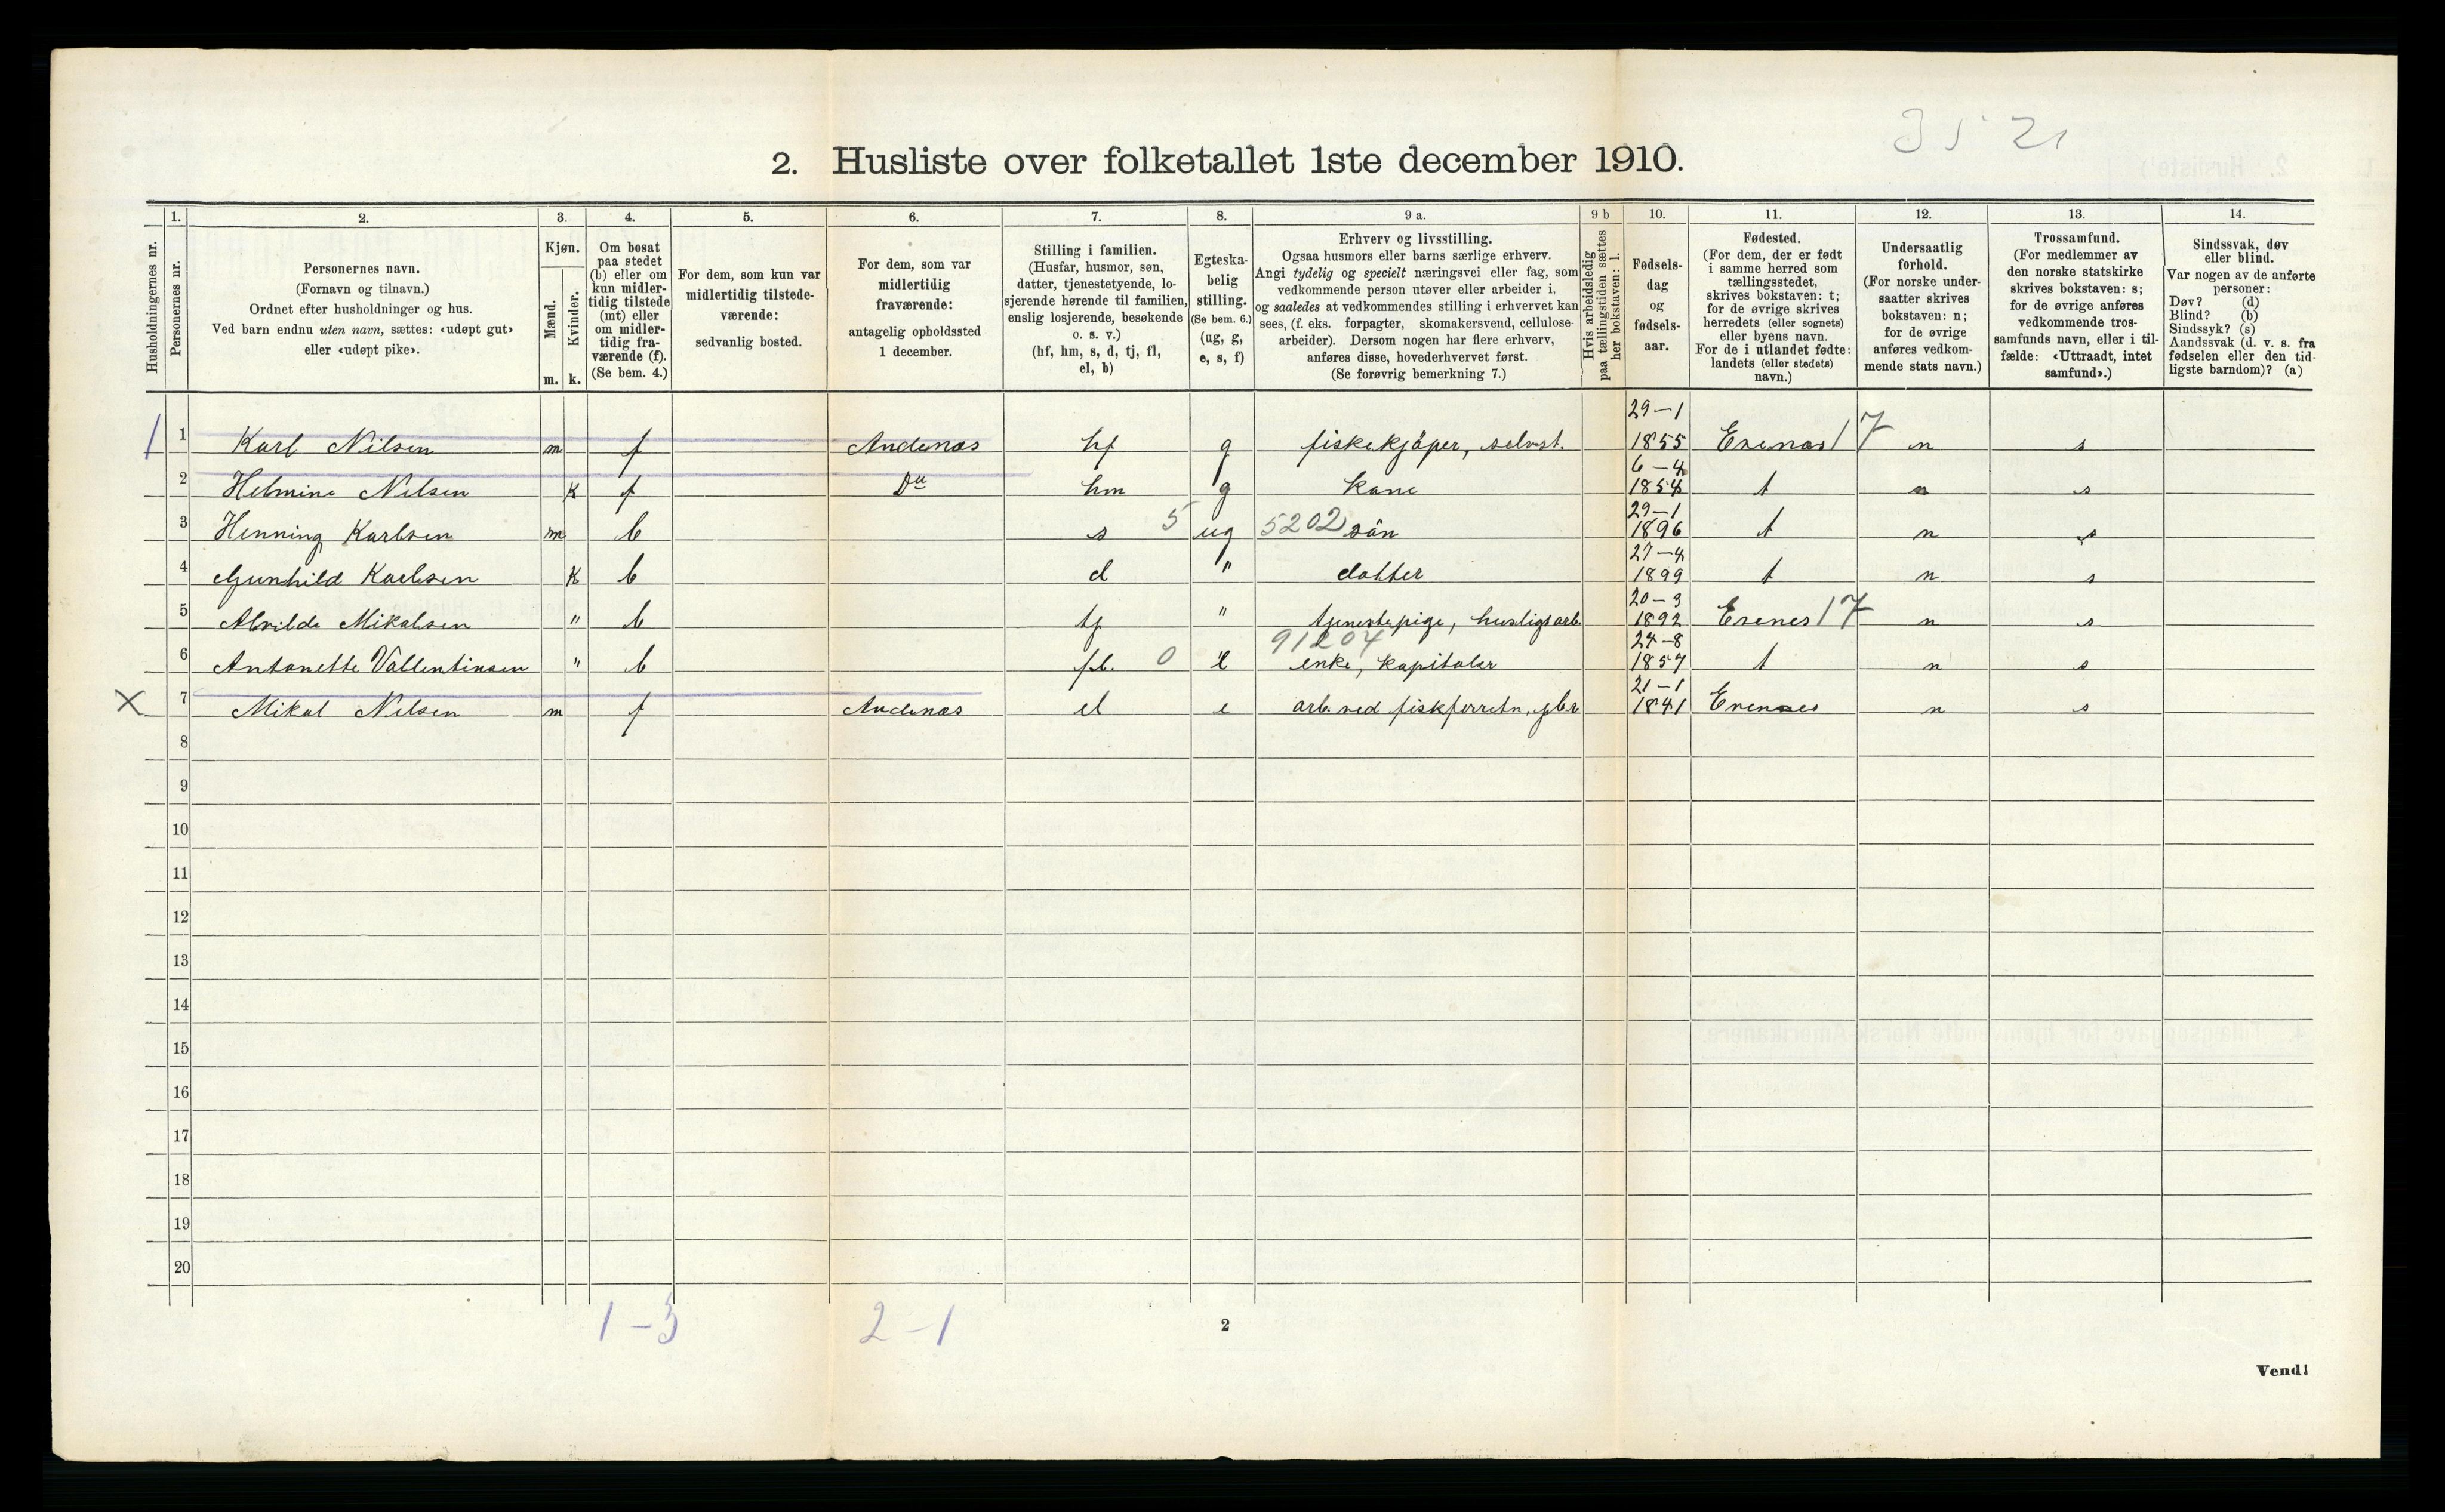 35 21
2. Husliste over folketallet 1ste december 1910.
1. 2. 3. 4. 5. 6. 7. 8. 9 a. 9 b 10. 11. 12. 13. 14.
Husholdningernes nr.
Personernes nr.
Personernes navn.
(Fornavn og tilnavn.)
Ordnet efter husholdninger og hus.
Ved barn endnu uten navn, sættes: «udøpt gut»
eller «udøpt pike».
Kjøn.
Mænd.
Kvinder.
m. k.
Om bosat
paa stedet
(b) eller om
kun midler-
tidig tilstede
(mt) eller
om midler-
tidig fra-
værende (f).
(Se bem. 4.)
For dem, som kun var
midlertidig tilstede-
værende:
sedvanlig bosted.
For dem, som var
midlertidig
fraværende:
antagelig opholdssted
1 december.
Stilling i familien.
(Husfar, husmor, søn,
datter, tjenestetyende, lo-
sjerende hørende til familien,
enslig losjerende, besøkende
o. s. v.)
(hf, hm, s, d, tj, fl,
el, b)
Egteska-
belig
stilling.
(Se bem. 6.)
(ug, g,
e, s, f)
Erhverv og livsstilling.
Ogsaa husmors eller barns særlige erhverv.
Angi tydelig og specielt næringsvei eller fag, som
vedkommende person utøver eller arbeider i,
og saaledes at vedkommendes stilling i erhvervet kan
sees, (f. eks. forpagter, skomakersvend, cellulose-
arbeider). Dersom nogen har flere erhverv,
anføres disse, hovederhvervet først.
(Se forøvrig bemerkning 7.)
Hvis arbeidsledig
paa tællingstiden sættes
her bokstaven: l.
Fødsels-
dag
og
fødsels-
aar.
Fødested.
(For dem, der er født
i samme herred som
tællingsstedet,
skrives bokstaven: t;
for de øvrige skrives
herredets (eller sognets)
eller byens navn.
For de i utlandet fødte:
landets (eller stedets)
navn.)
Undersaatlig
forhold.
(For norske under-
saatter skrives
bokstaven: n;
for de øvrige
anføres vedkom-
mende stats navn.)
Trossamfund.
(For medlemmer av
den norske statskirke
skrives bokstaven: s;
for de øvrige anføres
vedkommende tros-
samfunds navn, eller i til-
fælde: «Uttraadt, intet
samfund».)
Sindssvak, døv
eller blind.
Var nogen av de anførte
personer:
Døv? (d)
Blind? (b)
Sindssyk? (s)
Aandssvak (d. v. s. fra
fødselen eller den tid-
ligste barndom)? (a)
1 1 Karl Nilsen m f Andenæs hf g fiskekjöper, selvst. 29-1 1855 Evenæs 17 n s
2 Helmine Nilsen K f Do hm g Kone 6-4 1854 t n s
3 Henning Karlsen m b s 5 ug 5202 sön 29-1 1896 t n s
4 Gunhild Karlsen K b d " datter 27-4 1899 t n s
5 Alvilde Mikalsen " b tj " tjenestepige, husligt arb. 20-3 1892 Evenes 17 n s
6 Antonette Vallentinsen " b fl. 0 e 91204 enke, kapitaler 24-8 1857 t n s
X 7 Mikal Nilsen m f Andenæs el e arb. ved fiskforretn. 21-1 1841 Evenæs n s
8
9
10
11
12
13
14
15
16
17
18
19
20
1-3 2-1
2
Vend!